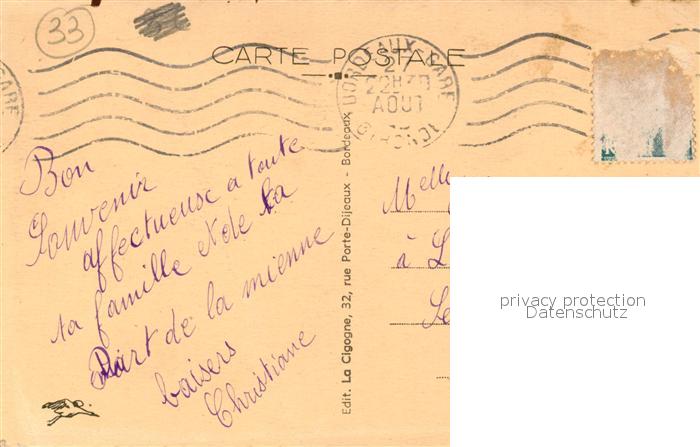 33
CARTE POSTALE
BORDEAUX GARE
22H30
AOUT
GIRONDE
GARE
Bon
Souvenir
affectueuse a toute
ta famille et de ta
Part de la mienne
baisers
Christiane
Edit. La Cigogne, 32, rue Porte-Dijeaux - Bordeaux
Melle
à L
privacy protection
Datenschutz